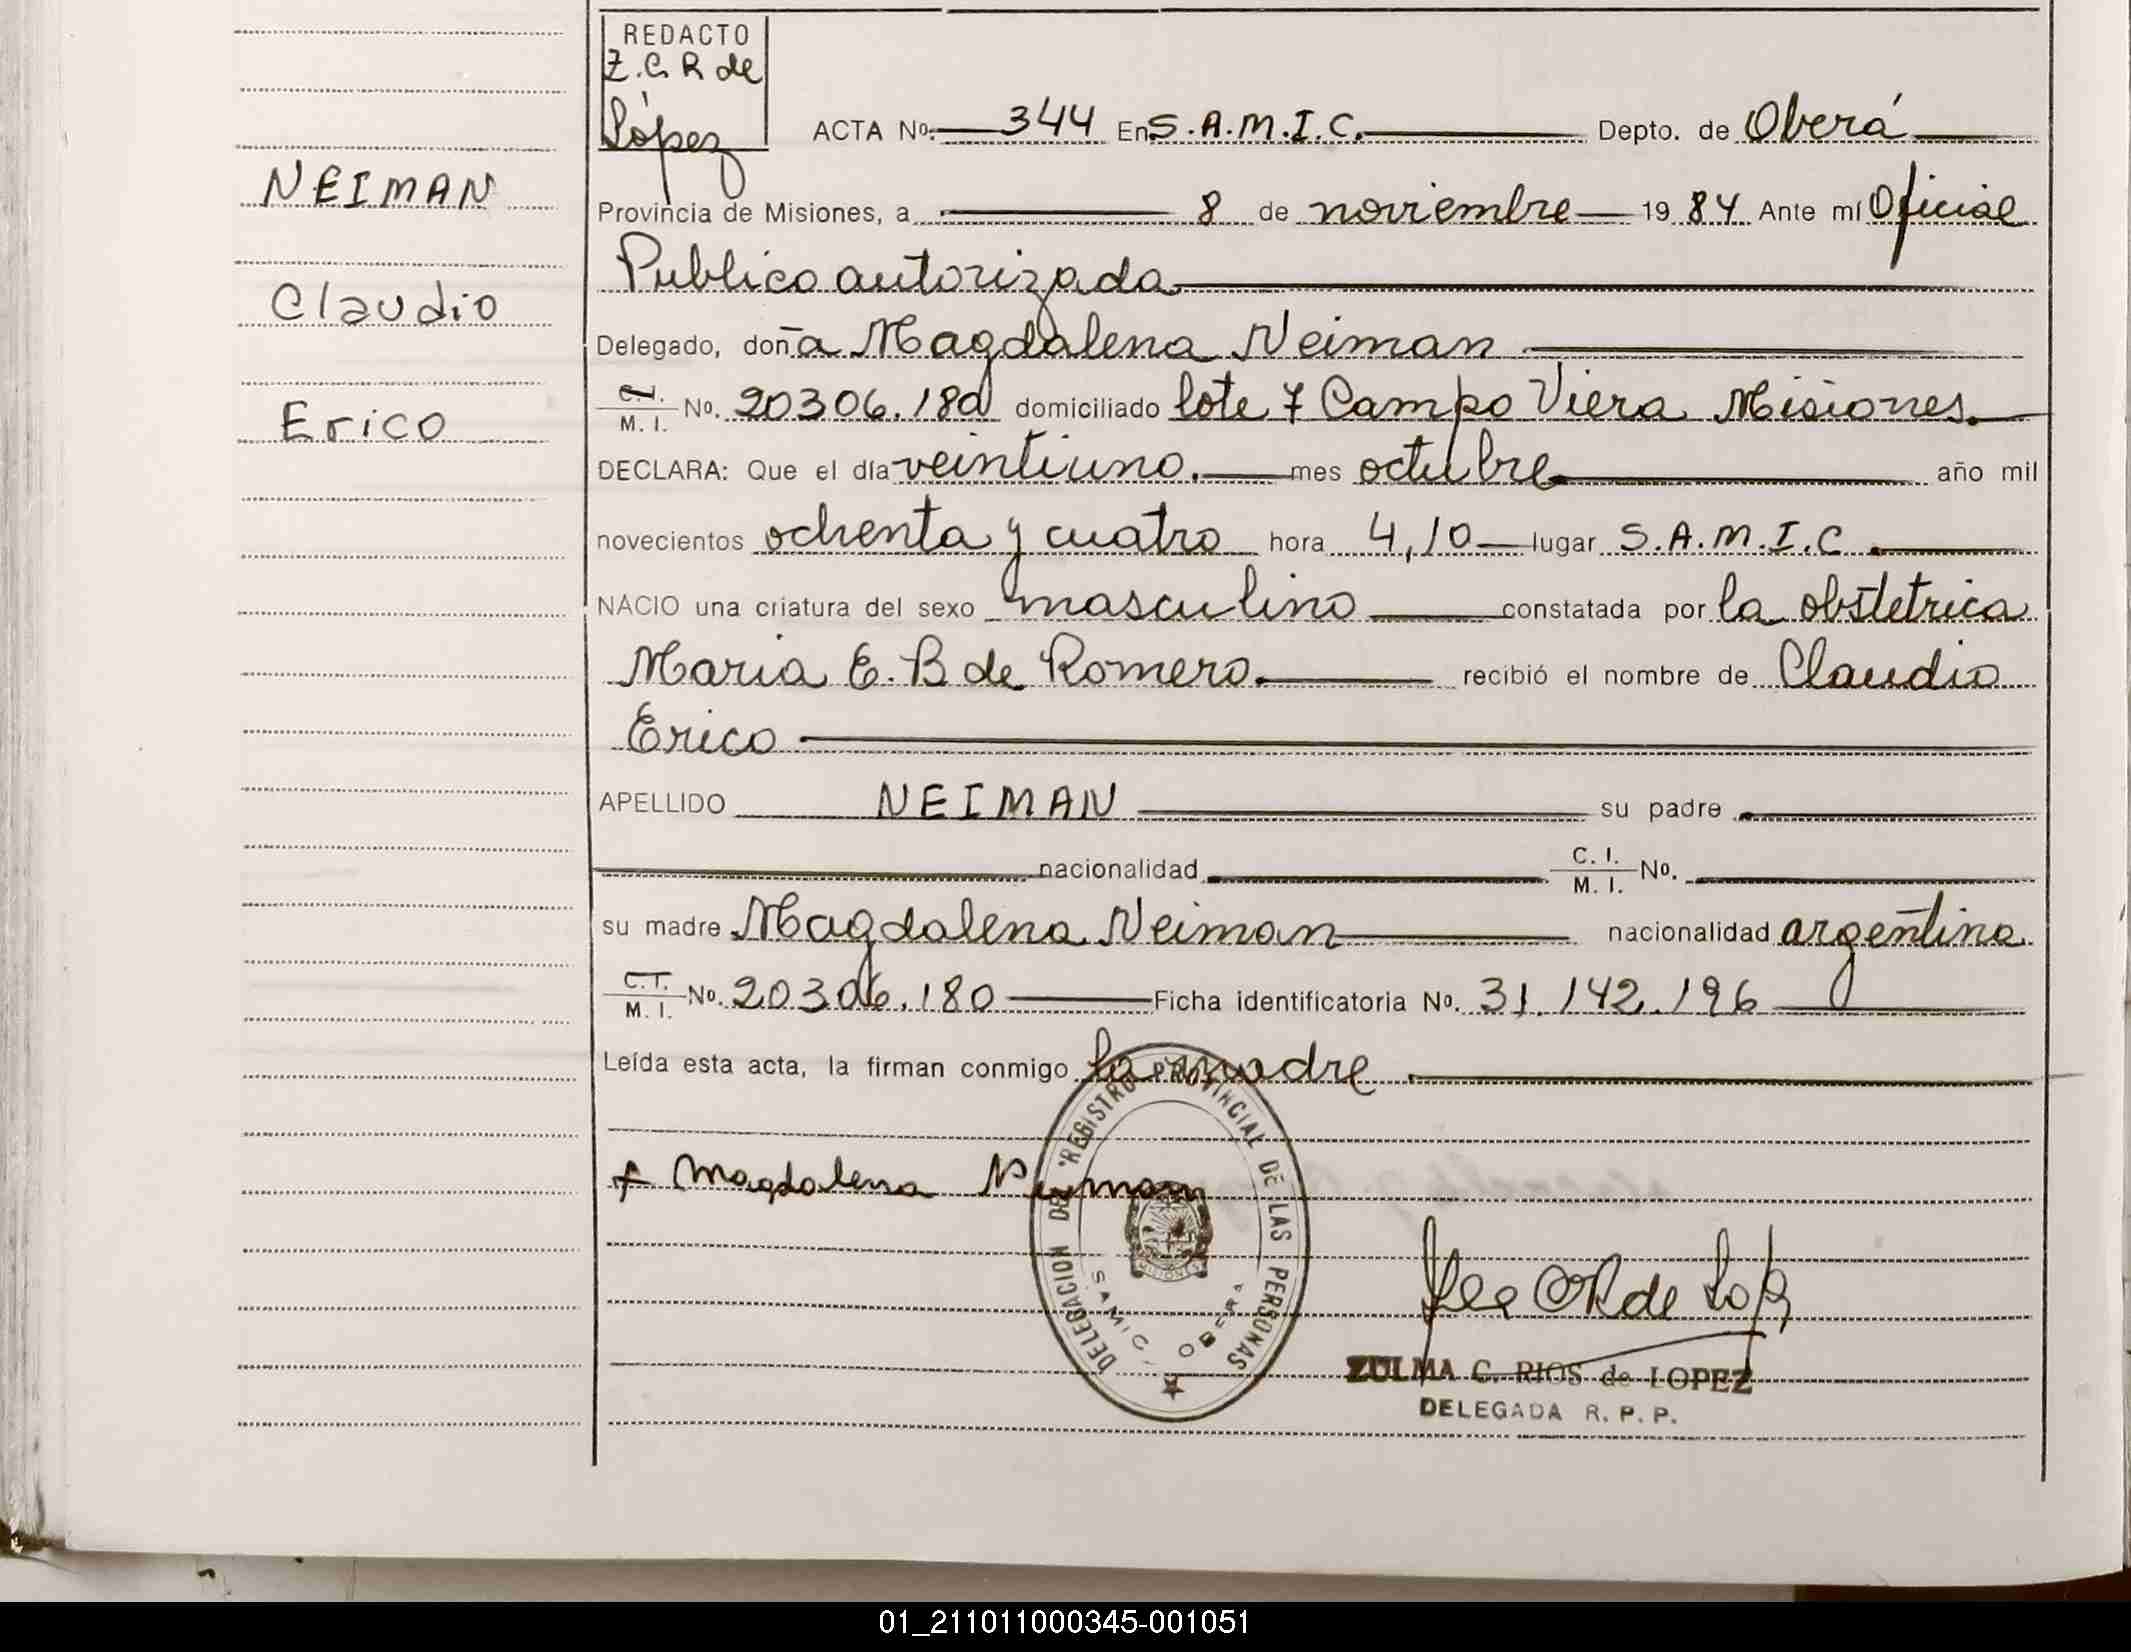 REDACTO
Z.C.R de
López
ACTA Nº. 344 En S.A.M.I.C. Depto. de Oberá
NEIMAN
Provincia de Misiones, a 8 de noviembre 19 84 Ante mí Oficial
Publico autorizada
Claudio
Delegado, doña Magdalena Neiman
C.I. M. I. No. 20306.180 domiciliado lote 7 Campo Viera Misiones.
Erico
DECLARA: Que el día veintiuno. mes octubre año mil
novecientos ochenta y cuatro hora 4,10 lugar S.A.M.I.C.
NACIO una criatura del sexo masculino constatada por la obstetrica
Maria E. B de Romero. recibió el nombre de Claudio
Erico
APELLIDO NEIMAN su padre
nacionalidad C. I. M. I. Nº.
su madre Magdalena Neiman nacionalidad argentina
C.I. M. I. Nº. 20306.180 Ficha identificatoria Nº. 31.142.196
Leída esta acta, la firman conmigo la madre
Magdalena Neiman
DELEGACION DEL REGISTRO PROVINCIAL DE LAS PERSONAS
MISIONES
SAMIC - OBERA
ZULMA C. RIOS de LOPEZ
DELEGADA R. P. P.
01_211011000345-001051